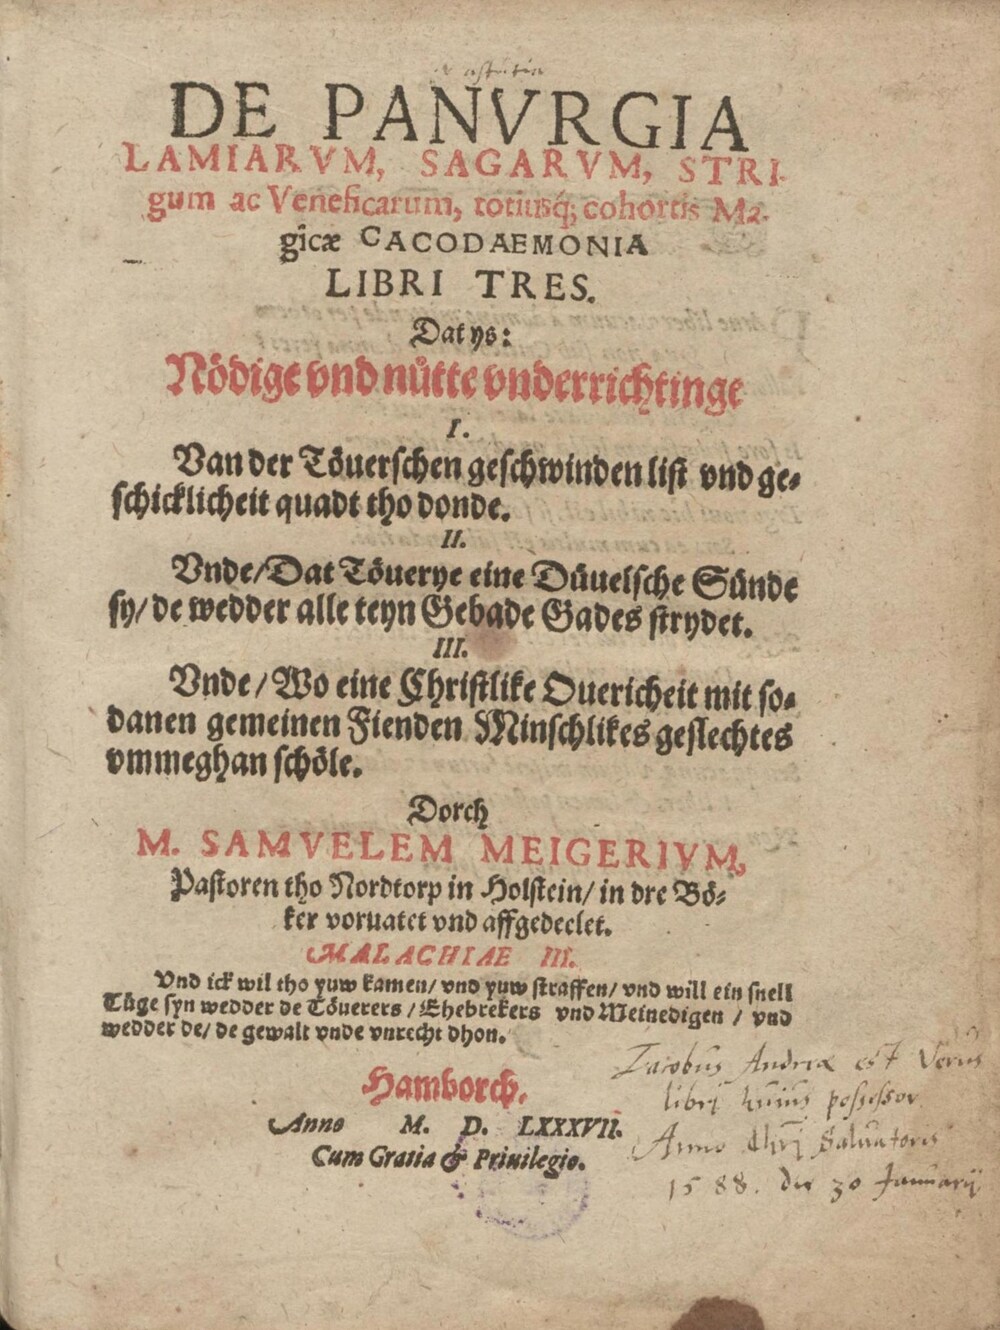 astutia
DE PANVRGIA
LAMIARVM, SAGARVM, STRI-
gum ac Veneficarum, totiusq́; cohortis Ma-
gicæ CACODAEMONIA
LIBRI TRES.
Dat ys:
Nödige vnd nuͤtte vnderrichtinge
I.
Van der Töuerschen geschwinden list vnd ge-
schicklicheit quadt tho donde.
II.
Vnde/Dat Töuerye eine Duͤuelsche Suͤnde
sy/ de wedder alle teyn Gebade Gades strydet.
III.
Vnde/ Wo eine Christlike Ouericheit mit so-
danen gemeinen Fienden Minschlikes geslechtes
vmmeghan schöle.
Dorch
M. SAMVELEM MEIGERIVM,
Pastoren tho Nordtorp in Holstein/ in dre Bö-
ker voruatet vnd affgedeelet.
MALACHIAE III.
Vnd ick wil tho yuw kamen/ vnd yuw straffen/ vnd will ein snell
Tuͤge syn wedder de Töuerers/ Ehebrekers vnd Meinedigen/ vnd
wedder de/ de gewalt vnde vnrecht dhon.
Hamborch.
Anno M. D. LXXXVII.
Cum Gratia & Priuilegio.
Jacobus Andreæ est Verus
librj huius possessor
Anno Chrj Saluatoris
1588. die 30 Januarij